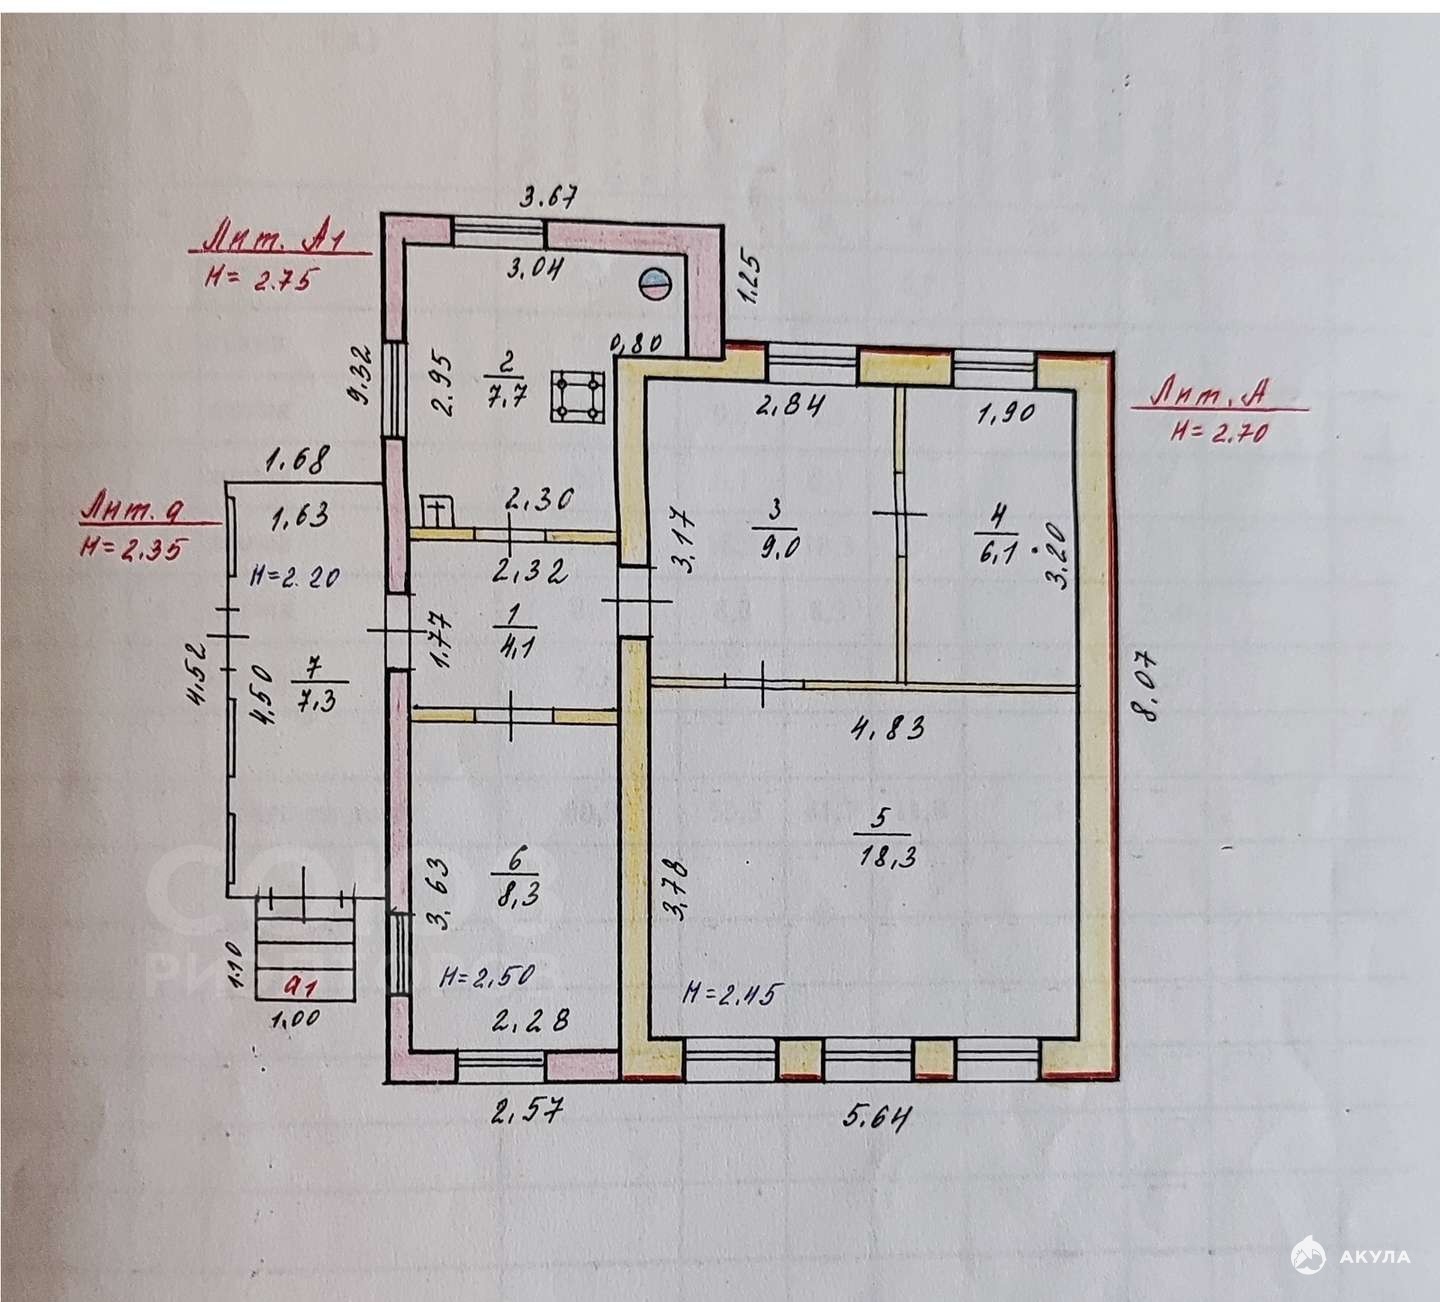 3.67
Лит. А1
H= 2.75
3.04
1.25
0,80
9.32
2.95
2
7.7
2,84
1,90
Лит. А
H=2.70
1.68
Лит. а
H=2.35
1,63
H=2.20
2,30
2,32
3.17
3
9.0
4
6,1
3.20
1
4,1
1.77
4.52
4.50
7
7,3
8.07
4,83
5
18,3
6
8,3
3.63
3,78
H=2,50
H=2.45
1.10
а1
1,00
2,28
2,57
5.64
СОЮЗ
АКУЛА